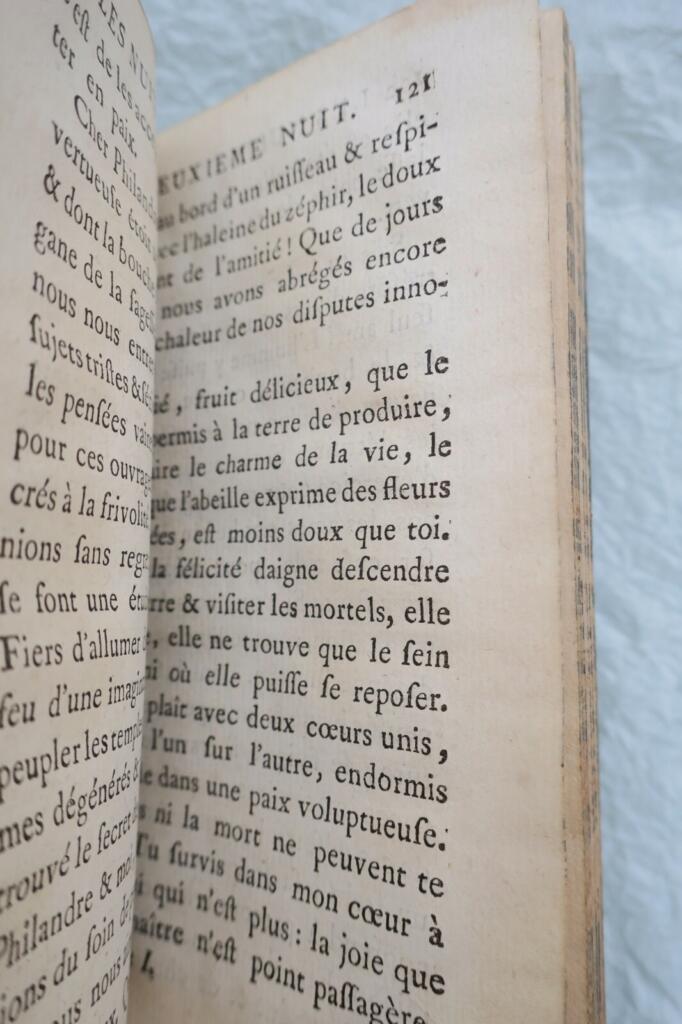 LES NU
est de les acco
ter en paix.
Cher Philand
vertueuse étoi
& dont la bouche
gane de la sages
nous nous entre
sujets tristes & sé
les pensées vai
pour ces ouvrag
crés à la frivolit
nions sans regr
se font une ét
Fiers d'allumer
feu d'une imagi
peupler les temple
mes dégénérés &
trouvé le secret
Philandre & mo
ions du soin de
us nous
EUXIEME NUIT. 121
au bord d'un ruisseau & respi-
ec l'haleine du zéphir, le doux
nt de l'amitié! Que de jours
nous avons abrégés encore
chaleur de nos disputes inno-
ié, fruit délicieux, que le
permis à la terre de produire,
ire le charme de la vie, le
que l'abeille exprime des fleurs
ées, est moins doux que toi.
la félicité daigne descendre
rre & visiter les mortels, elle
elle ne trouve que le sein
i où elle puisse se reposer.
plaît avec deux cœurs unis,
l'un sur l'autre, endormis
e dans une paix voluptueuse.
s ni la mort ne peuvent te
Tu survis dans mon cœur à
i qui n'est plus : la joie que
aître n'est point passagère
I,